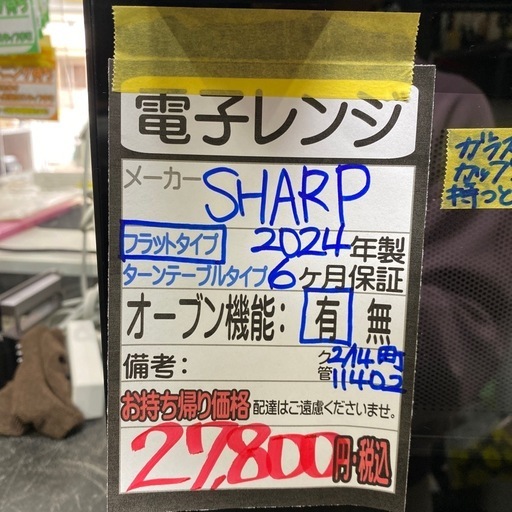 電子レンジ
メーカー SHARP
フラットタイプ 2024年製
ターンテーブルタイプ 6ヶ月保証
オーブン機能: 有 無
備考:
ク 2/14町
管 11402
お持ち帰り価格 配達はご遠慮くださいませ。
27,800円・税込
ガラス
カップ
持つと